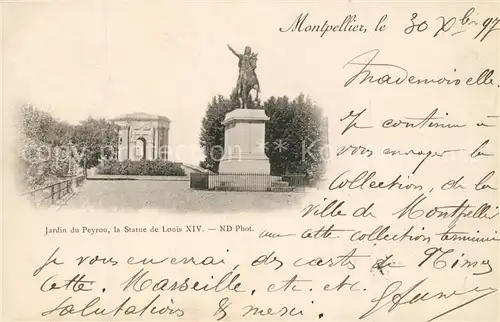 Montpellier, le 30 Xbre 97
Mademoiselle.
Je continue à
vous envoyer la
collection de la
Ville de Montpellier
cette collection terminée
Jardin du Peyrou, la Statue de Louis XIV. — ND Phot.
je vous enverrai des carts de Nimes
Cette, Marseille, etc. etc.
Salutations & merci.